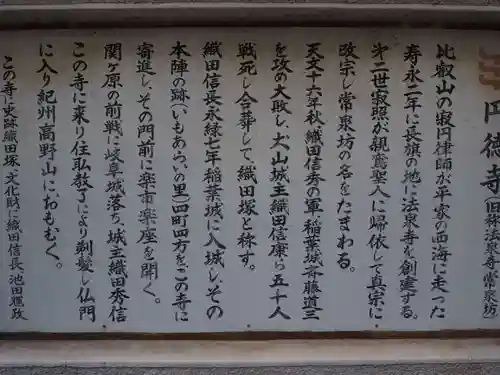 円徳寺(旧名法泉寺常泉坊)
比叡山の寂円律師が平家の西海に走った
寿永二年に長旗の地に法泉寺を創建する。
第二世寂照が親鸞聖人に帰依して真宗に
改宗し常泉坊の名をたまわる。
天文十六年秋織田信秀の軍稲葉城斉藤道三
を攻め大敗し、犬山城主織田信康ら五十人
戦死し合葬して、織田塚と称す。
織田信長永禄七年稲葉城に入城しその
本陣の跡(いもあらいの里)四町四方をこの寺に
寄進し、その門前に楽市楽座を開く。
関ヶ原の前戦に岐阜城落ち、城主織田秀信
この寺に来り住職教了により剃髪し仏門
に入り紀州高野山に、おもむく。
この寺に史跡織田塚、文化財に織田信長 池田輝政